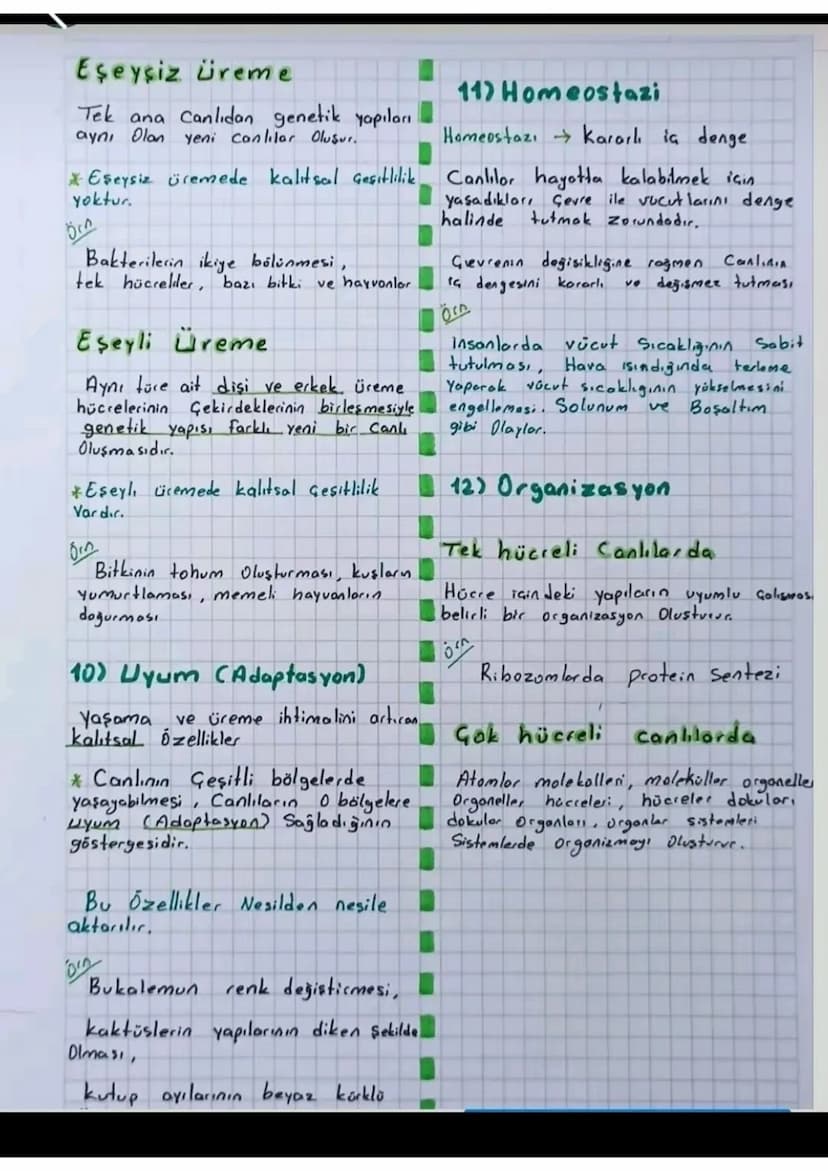 Eşeysiz Üreme
Tek ana Canlıdan genetik yapıları
aynı Olan yeni canlılar Oluşur.
* Eşeysiz üremede kalıtsal Çeşitlilik
yoktur.
Örn
Bakterilerin ikiye bölünmesi,
tek hücreliler, bazı bitki ve hayvanlar
Eşeyli Üreme
Aynı türe ait dişi ve erkek üreme
hücrelerinin Çekirdeklerinin birleşmesiyle
genetik yapısı farklı yeni bir Canlı
Oluşmasıdır.
* Eşeyli üremede kalıtsal Çeşitlilik
Vardır.
Örn
Bitkinin tohum Oluşturması, kuşların
yumurtlaması, memeli hayvanların
doğurması
10) Uyum (Adaptasyon)
Yaşama ve üreme ihtimalini artıran
kalıtsal Özellikler
* Canlının Çeşitli bölgelerde
yaşayabilmesi, Canlıların O bölgelere
uyum (Adaptasyon) Sağladığının
göstergesidir.
Bu Özellikler Nesilden nesile
aktarılır.
Örn
Bukalemun renk değiştirmesi,
kaktüslerin yapılarının diken Şekilde
Olması,
kutup ayılarının beyaz kürklü
11) Homeostazi
Homeostazı → Kararlı iç denge
Canlılar hayatta kalabilmek için
yaşadıkları Çevre ile vücutlarını denge
halinde tutmak zorundadır.
Çevrenin değişikliğine rağmen Canlının
iç dengesini kararlı ve değişmez tutması
Örn
insanlarda vücut Sıcaklığının Sabit
tutulması, Hava ısındığında terleme
Yaparak vücut sıcaklığının yükselmesini
engellemesi. Solunum ve Boşaltım
gibi Olaylar.
12) Organizasyon
Tek hücreli Canlılarda
Hücre içindeki yapıların uyumlu Çalışması
belirli bir organizasyon Oluşturur.
örn
Ribozomlarda protein Sentezi
Çok hücreli canlılarda
Atomlar molekülleri, moleküller organelle
Organeller hücreleri, hücreler dokuları
dokular Organları, organlar sistemleri
Sistemlerde organizmayı Oluşturur.